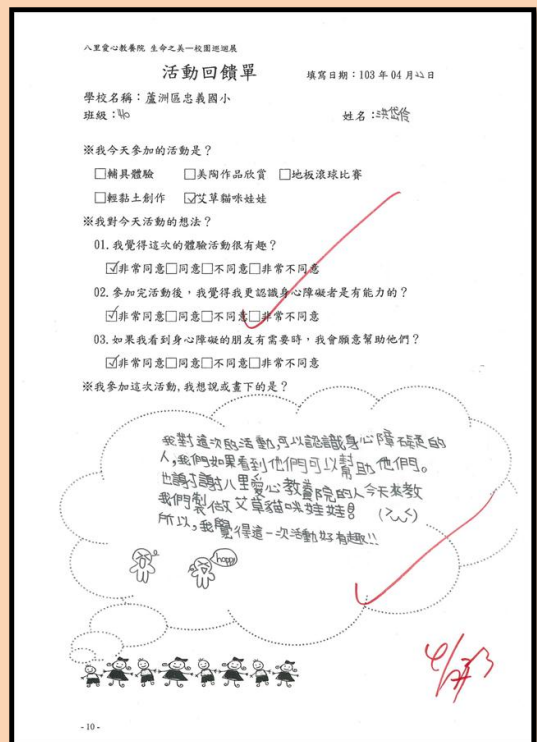 八里愛心教養院 生命之美—校園巡迴展
活動回饋單
填寫日期：103 年 04 月22日
學校名稱：蘆洲區忠義國小
班級：410
姓名：洪岱伶
※我今天參加的活動是？
□輔具體驗 □美陶作品欣賞 □地板滾球比賽
□輕黏土創作 ☑艾草貓咪娃娃
※我對今天活動的想法？
01.我覺得這次的體驗活動很有趣？
☑非常同意□同意□不同意□非常不同意
02.參加完活動後，我覺得我更認識身心障礙者是有能力的？
☑非常同意□同意□不同意□非常不同意
03.如果我看到身心障礙的朋友有需要時，我會願意幫助他們？
☑非常同意□同意□不同意□非常不同意
※我參加這次活動,我想說或畫下的是？
我對這次的活動,可以認識身心障礙的
人,我們如果看到他們可以幫助他們。
也謝謝八里愛心教養院的人今天來教
我們製做艾草貓咪娃娃! (>ᴗ<)
所以,我覺得這一次活動好有趣!!
happy
- 10 -